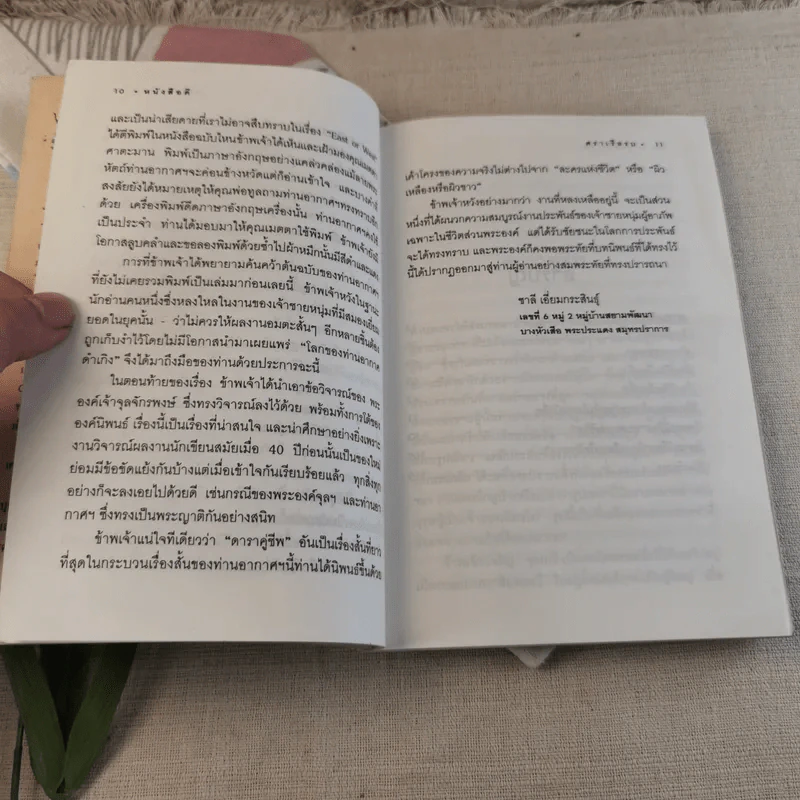 10 • หนังสือดี
และเป็นน่าเสียดายที่เราไม่อาจสืบทราบในเรื่อง "East or West"
ได้ตีพิมพ์ในหนังสือฉบับไหนข้าพเจ้าได้เห็นและเฝ้ามองคุณเมตตา
ศาตะมาน พิมพ์เป็นภาษาอังกฤษอย่างคล่วคล่องแม้ลายพระ
หัตถ์ท่านอากาศฯจะค่อนข้างหวัดแต่ก็อ่านเข้าใจ และบางคำที่
สงสัยยังได้หมายเหตุให้คุณพ่อทูลถามท่านอากาศฯทรงทราบอีก
ด้วย เครื่องพิมพ์ดีดภาษาอังกฤษเครื่องนั้น ท่านอากาศฯ
เป็นประจำ ท่านได้มอบมาให้คุณเมตตาใช้พิมพ์ ข้าพเจ้ายังมี
โอกาสลูบคลำและขอลองพิมพ์ด้วยซ้ำไปผ้าหมึกนั้นมีสีดำและแดง
การที่ข้าพเจ้าได้พยายามค้นคว้าต้นฉบับของท่านอากาศฯ
ที่ยังไม่เคยรวมพิมพ์เป็นเล่มมาก่อนเลยนี้ ข้าพเจ้าหวังในฐานะ
นักอ่านคนหนึ่งซึ่งหลงใหลในงานของเจ้าชายหนุ่มที่มีสมองเยี่ยม
ยอดในยุคนั้น - ว่าไม่ควรให้ผลงานอมตะสั้นๆ อีกหลายชิ้นต้อง
ถูกเก็บงำไว้โดยไม่มีโอกาสนำมาเผยแพร่ "โลกของท่านอากาศ
ดำเกิง" จึงได้มาถึงมือของท่านด้วยประการฉะนี้
ในตอนท้ายของเรื่อง ข้าพเจ้าได้นำเอาข้อวิจารณ์ของ พระ
องค์เจ้าจุลจักรพงษ์ ซึ่งทรงวิจารณ์ลงไว้ด้วย พร้อมทั้งการโต้ของ
องค์นิพนธ์ เรื่องนี้เป็นเรื่องที่น่าสนใจ และน่าศึกษาอย่างยิ่งเพราะ
งานวิจารณ์ผลงานนักเขียนสมัยเมื่อ 40 ปีก่อนนั้นเป็นของใหม่
ย่อมมีข้อขัดแย้งกันบ้างแต่เมื่อเข้าใจกันเรียบร้อยแล้ว ทุกสิ่งทุก
อย่างก็จะลงเอยไปด้วยดี เช่นกรณีของพระองค์จุลฯ และท่านอา
กาศฯ ซึ่งทรงเป็นพระญาติกันอย่างสนิท
ข้าพเจ้าแน่ใจทีเดียวว่า "ดาราคู่ชีพ" อันเป็นเรื่องสั้นที่ยาว
ที่สุดในกระบวนเรื่องสั้นของท่านอากาศฯนี้ท่านได้นิพนธ์ขึ้นด้วย
คราเรือรบ • 11
เค้าโครงของความจริงไม่ต่างไปจาก "ละครแห่งชีวิต" หรือ "ผิว
เหลืองหรือผิวขาว"
ข้าพเจ้าหวังอย่างมากว่า งานที่หลงเหลืออยู่นี้ จะเป็นส่วน
หนึ่งที่ได้ผนวกความสมบูรณ์งานประพันธ์ของเจ้าชายหนุ่มผู้อาภัพ
เฉพาะในชีวิตส่วนพระองค์ แต่ได้รับชัยชนะในโลกการประพันธ์
จะได้ทรงทราบ และพระองค์ก็คงพอพระทัยที่บทนิพนธ์ที่ได้ทรงไว้
นี้ได้ปรากฏออกมาสู่ท่านผู้อ่านอย่างสมพระทัยที่ทรงปรารถนา
ชาลี เอี่ยมกระสินธุ์
เลขที่ 6 หมู่ 2 หมู่บ้านสยามพัฒนา
บางหัวเสือ พระประแดง สมุทรปราการ